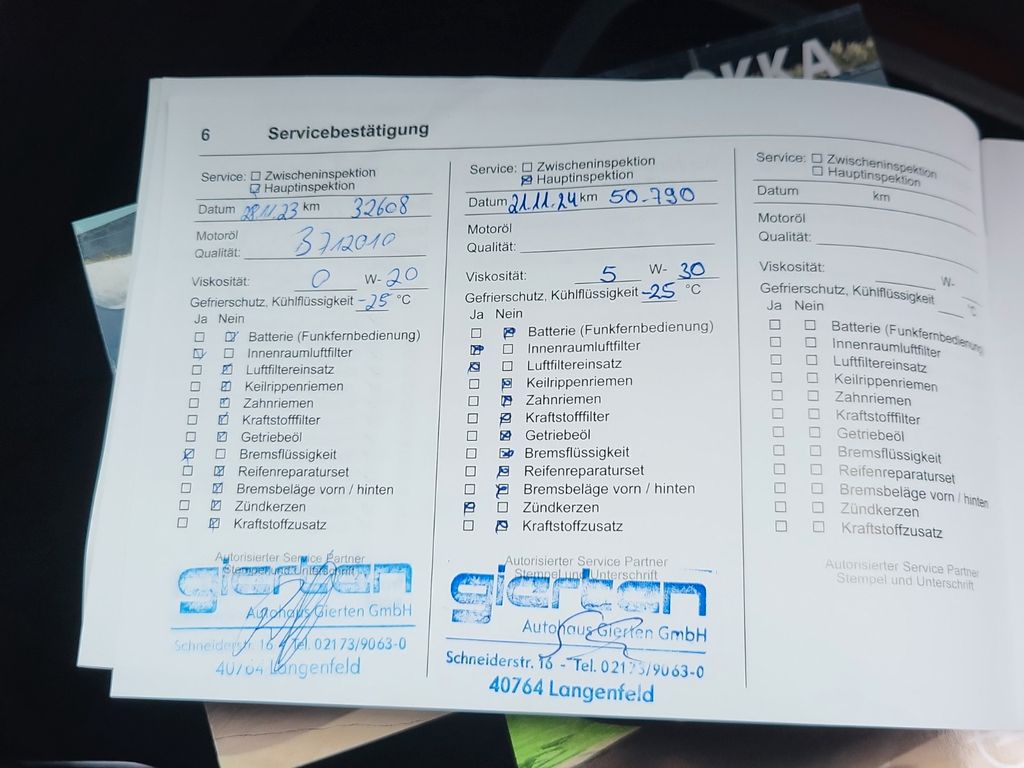 OKKA
6 Servicebestätigung
Service: Zwischeninspektion
Hauptinspektion
Datum 28.11.23 km 32608
Motoröl
Qualität: B712010
Viskosität: 0 W- 20
Gefrierschutz, Kühlflüssigkeit -25 °C
Ja Nein
Batterie (Funkfernbedienung)
Innenraumluftfilter
Luftfiltereinsatz
Keilrippenriemen
Zahnriemen
Kraftstofffilter
Getriebeöl
Bremsflüssigkeit
Reifenreparaturset
Bremsbeläge vorn / hinten
Zündkerzen
Kraftstoffzusatz
Autorisierter Service Partner
Stempel und Unterschrift
gierten
Autohaus Gierten GmbH
Schneiderstr. 16 - Tel. 02173/9063-0
40764 Langenfeld
Service: Zwischeninspektion
Hauptinspektion
Datum 21.11.24 km 50.790
Motoröl
Qualität:
Viskosität: 5 W- 30
Gefrierschutz, Kühlflüssigkeit -25 °C
Ja Nein
Batterie (Funkfernbedienung)
Innenraumluftfilter
Luftfiltereinsatz
Keilrippenriemen
Zahnriemen
Kraftstofffilter
Getriebeöl
Bremsflüssigkeit
Reifenreparaturset
Bremsbeläge vorn / hinten
Zündkerzen
Kraftstoffzusatz
Autorisierter Service Partner
Stempel und Unterschrift
gierten
Autohaus Gierten GmbH
Schneiderstr. 16 - Tel. 02173/9063-0
40764 Langenfeld
Service: Zwischeninspektion
Hauptinspektion
Datum km
Motoröl
Qualität:
Viskosität: W-
Gefrierschutz, Kühlflüssigkeit °C
Ja Nein
Batterie (Funkfernbedienung)
Innenraumluftfilter
Luftfiltereinsatz
Keilrippenriemen
Zahnriemen
Kraftstofffilter
Getriebeöl
Bremsflüssigkeit
Reifenreparaturset
Bremsbeläge vorn / hinten
Zündkerzen
Kraftstoffzusatz
Autorisierter Service Partner
Stempel und Unterschrift